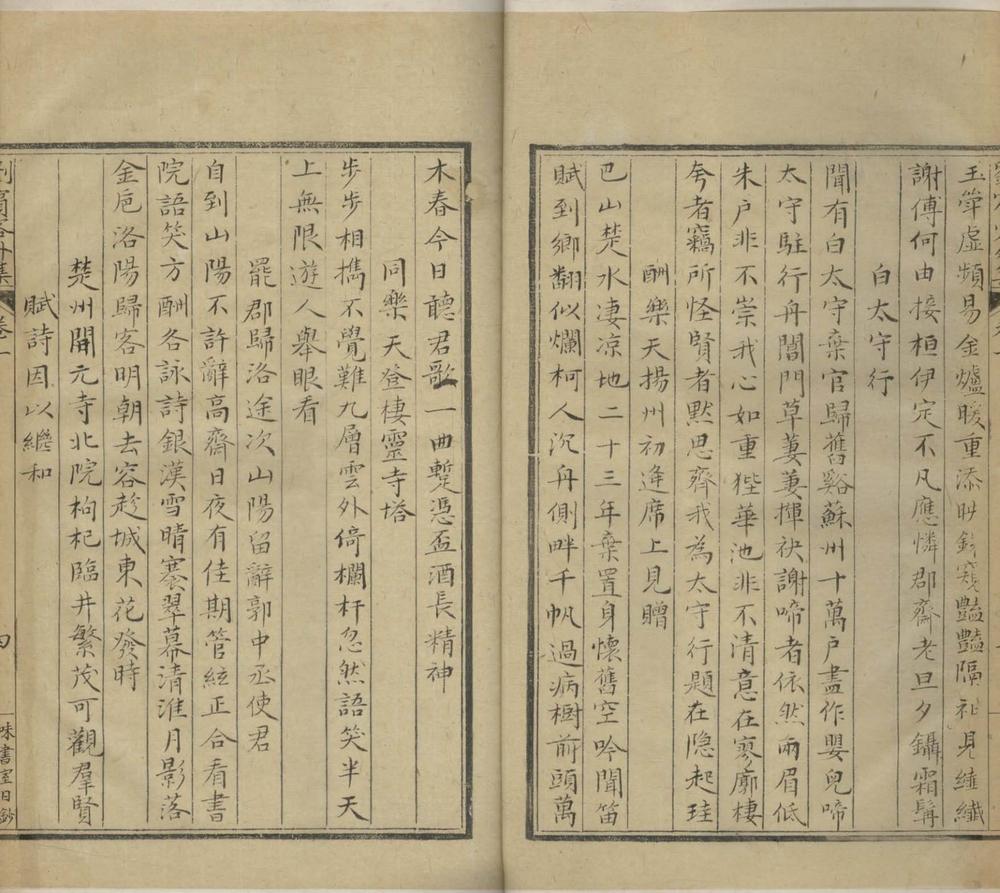 玉箏虛頻易金爐暖重添㫼釵窺豔豔隔袖見纖纖
謝傅何由接桓伊定不凡應憐郡齋老旦夕鑷霜髯
白太守行
聞有白太守棄官歸舊谿蘇州十萬戶盡作嬰兒啼
太守駐行舟閶門草萋萋揮袂謝啼者依然兩眉低
朱戶非不崇我心如重狴華池非不清意在寥廓棲
夸者竊所怪賢者默思齊我為太守行題在隱起珪
酬樂天揚州初逢席上見贈
巴山楚水凄涼地二十三年棄置身懷舊空吟聞笛
賦到鄉翻似爛柯人沉舟側畔千帆過病樹前頭萬
木春今日聽君歌一曲蹔憑盃酒長精神
同樂天登棲靈寺塔
步步相攜不覺難九層雲外倚欄杆忽然語笑半天
上無限遊人舉眼看
罷郡歸洛途次山陽留辭郭中丞使君
自到山陽不許辭高齋日夜有佳期管絃正合看書
院語笑方酬各詠詩銀漢雪晴褰翠幕清淮月影落
金巵洛陽歸客明朝去容趁城東花發時
楚州開元寺北院枸杞臨井繁茂可觀羣賢
賦詩因以繼和
劉賓客外集 卷一
四
味書室日鈔